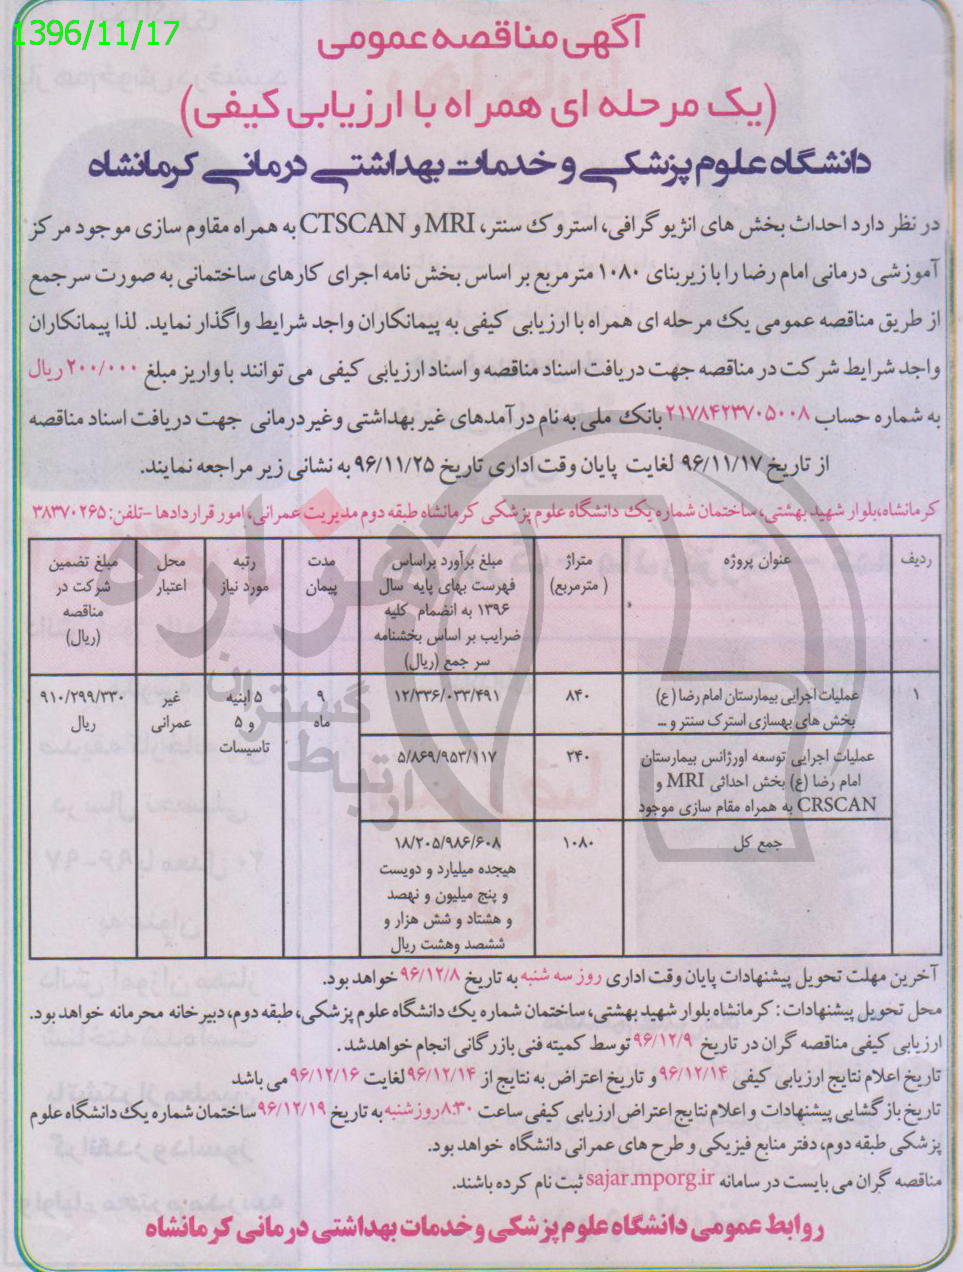 1396/11/17
آگهی مناقصه عمومی
(یک مرحله ای همراه با ارزیابی کیفی)
دانشگاه علوم پزشکی و خدمات بهداشتی درمانی کرمانشاه
در نظر دارد احداث بخش های انژیوگرافی، استروک سنتر، MRI و CTSCAN به همراه مقاوم سازی موجود مرکز
آموزشی درمانی امام رضا را با زیربنای ۱۰۸۰ مترمربع بر اساس بخش نامه اجرای کارهای ساختمانی به صورت سرجمع
از طریق مناقصه عمومی یک مرحله ای همراه با ارزیابی کیفی به پیمانکاران واجد شرایط واگذار نماید. لذا پیمانکاران
واجد شرایط شرکت در مناقصه جهت دریافت اسناد مناقصه و اسناد ارزیابی کیفی می توانند با واریز مبلغ ۲۰۰/۰۰۰ ریال
به شماره حساب ۲۱۷۸۴۲۳۷۰۵۰۰۸ بانک ملی به نام درآمدهای غیر بهداشتی وغیردرمانی جهت دریافت اسناد مناقصه
از تاریخ ۹۶/۱۱/۱۷ لغایت پایان وقت اداری تاریخ ۹۶/۱۱/۲۵ به نشانی زیر مراجعه نمایند.
کرمانشاه،بلوار شهید بهشتی، ساختمان شماره یک دانشگاه علوم پزشکی کرمانشاه طبقه دوم مدیریت عمرانی، امور قراردادها -تلفن: ۳۸۳۷۰۲۶۵
ردیف
عنوان پروژه
متراژ
( مترمربع)
مبلغ برآورد براساس
فهرست بهای پایه سال
۱۳۹۶ به انضمام کلیه
ضرایب بر اساس بخشنامه
سر جمع (ریال)
مدت
پیمان
رتبه
مورد نیاز
محل
اعتبار
مبلغ تضمین
شرکت در
مناقصه
(ریال)
۱
عملیات اجرایی بیمارستان امام رضا (ع)
بخش های بهسازی استرک سنتر و ...
۸۴۰
۱۲/۳۳۶/۰۳۳/۴۹۱
۹
ماه
۵ ابنیه
و ۵
تاسیسات
غیر
عمرانی
۹۱۰/۲۹۹/۳۳۰
ریال
عملیات اجرایی توسعه اورژانس بیمارستان
امام رضا (ع) بخش احداثی MRI و
CRSCAN به همراه مقام سازی موجود
۲۴۰
۵/۸۶۹/۹۵۳/۱۱۷
جمع کل
۱۰۸۰
۱۸/۲۰۵/۹۸۶/۶۰۸
هیجده میلیارد و دویست
و پنج میلیون و نهصد
و هشتاد و شش هزار و
ششصد وهشت ریال
هزاره
گستران
ارتباط
آخرین مهلت تحویل پیشنهادات پایان وقت اداری روز سه شنبه به تاریخ ۹۶/۱۲/۸ خواهد بود.
محل تحویل پیشنهادات : کرمانشاه بلوار شهید بهشتی، ساختمان شماره یک دانشگاه علوم پزشکی، طبقه دوم، دبیرخانه محرمانه خواهد بود.
ارزیابی کیفی مناقصه گران در تاریخ ۹۶/۱۲/۹ توسط کمیته فنی بازرگانی انجام خواهدشد.
تاریخ اعلام نتایج ارزیابی کیفی ۹۶/۱۲/۱۴ و تاریخ اعتراض به نتایج از ۹۶/۱۲/۱۴ لغایت ۹۶/۱۲/۱۶ می باشد
تاریخ بازگشایی پیشنهادات و اعلام نتایج اعتراض ارزیابی کیفی ساعت ۸:۳۰ روز شنبه به تاریخ ۹۶/۱۲/۱۹ ساختمان شماره یک دانشگاه علوم
پزشکی طبقه دوم، دفتر منابع فیزیکی و طرح های عمرانی دانشگاه خواهد بود.
مناقصه گران می بایست در سامانه sajar.mporg.ir ثبت نام کرده باشند.
روابط عمومی دانشگاه علوم پزشکی و خدمات بهداشتی درمانی کرمانشاه